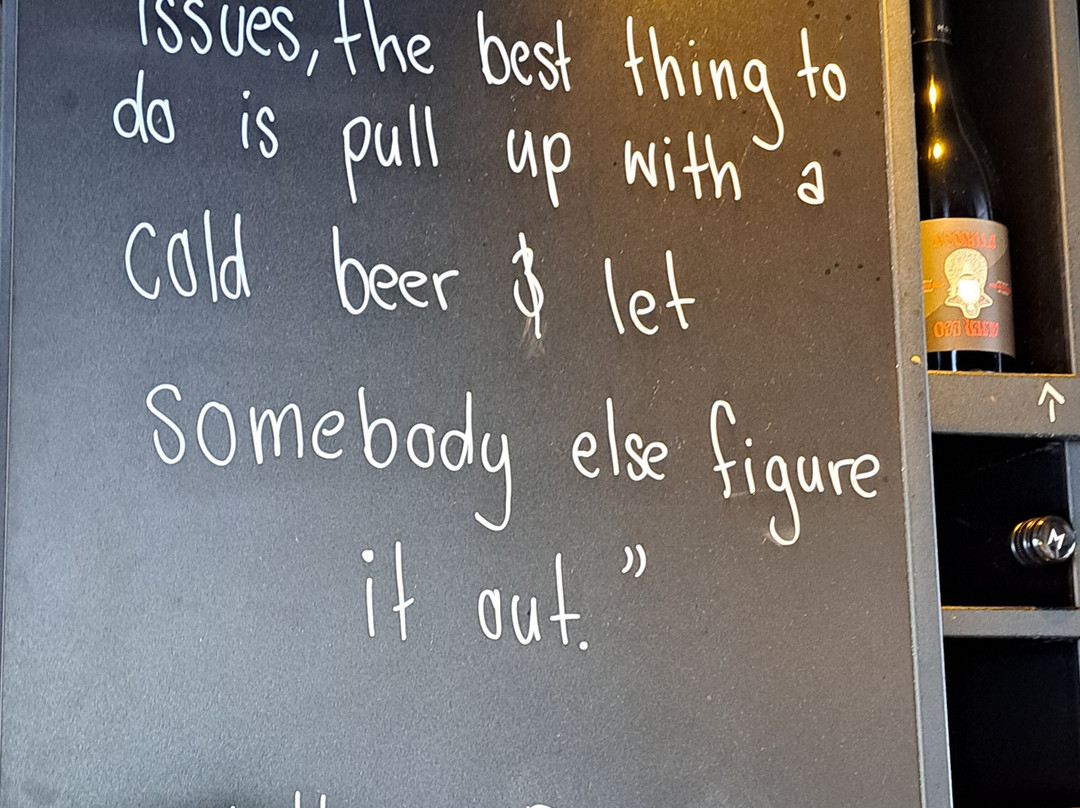 issues, the best thing to
do is pull up with a
cold beer & let
Somebody else figure
it out."